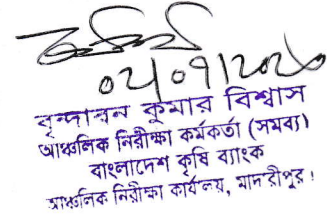 বৃন্দাবন কুমার বিশ্বাস
আঞ্চলিক নিরীক্ষা কর্মকর্তা (সমবয়)
বাংলাদেশ কৃষি ব্যাংক
আঞ্চলিক নিরীক্ষা কার্যালয়, মাদারীপুর।